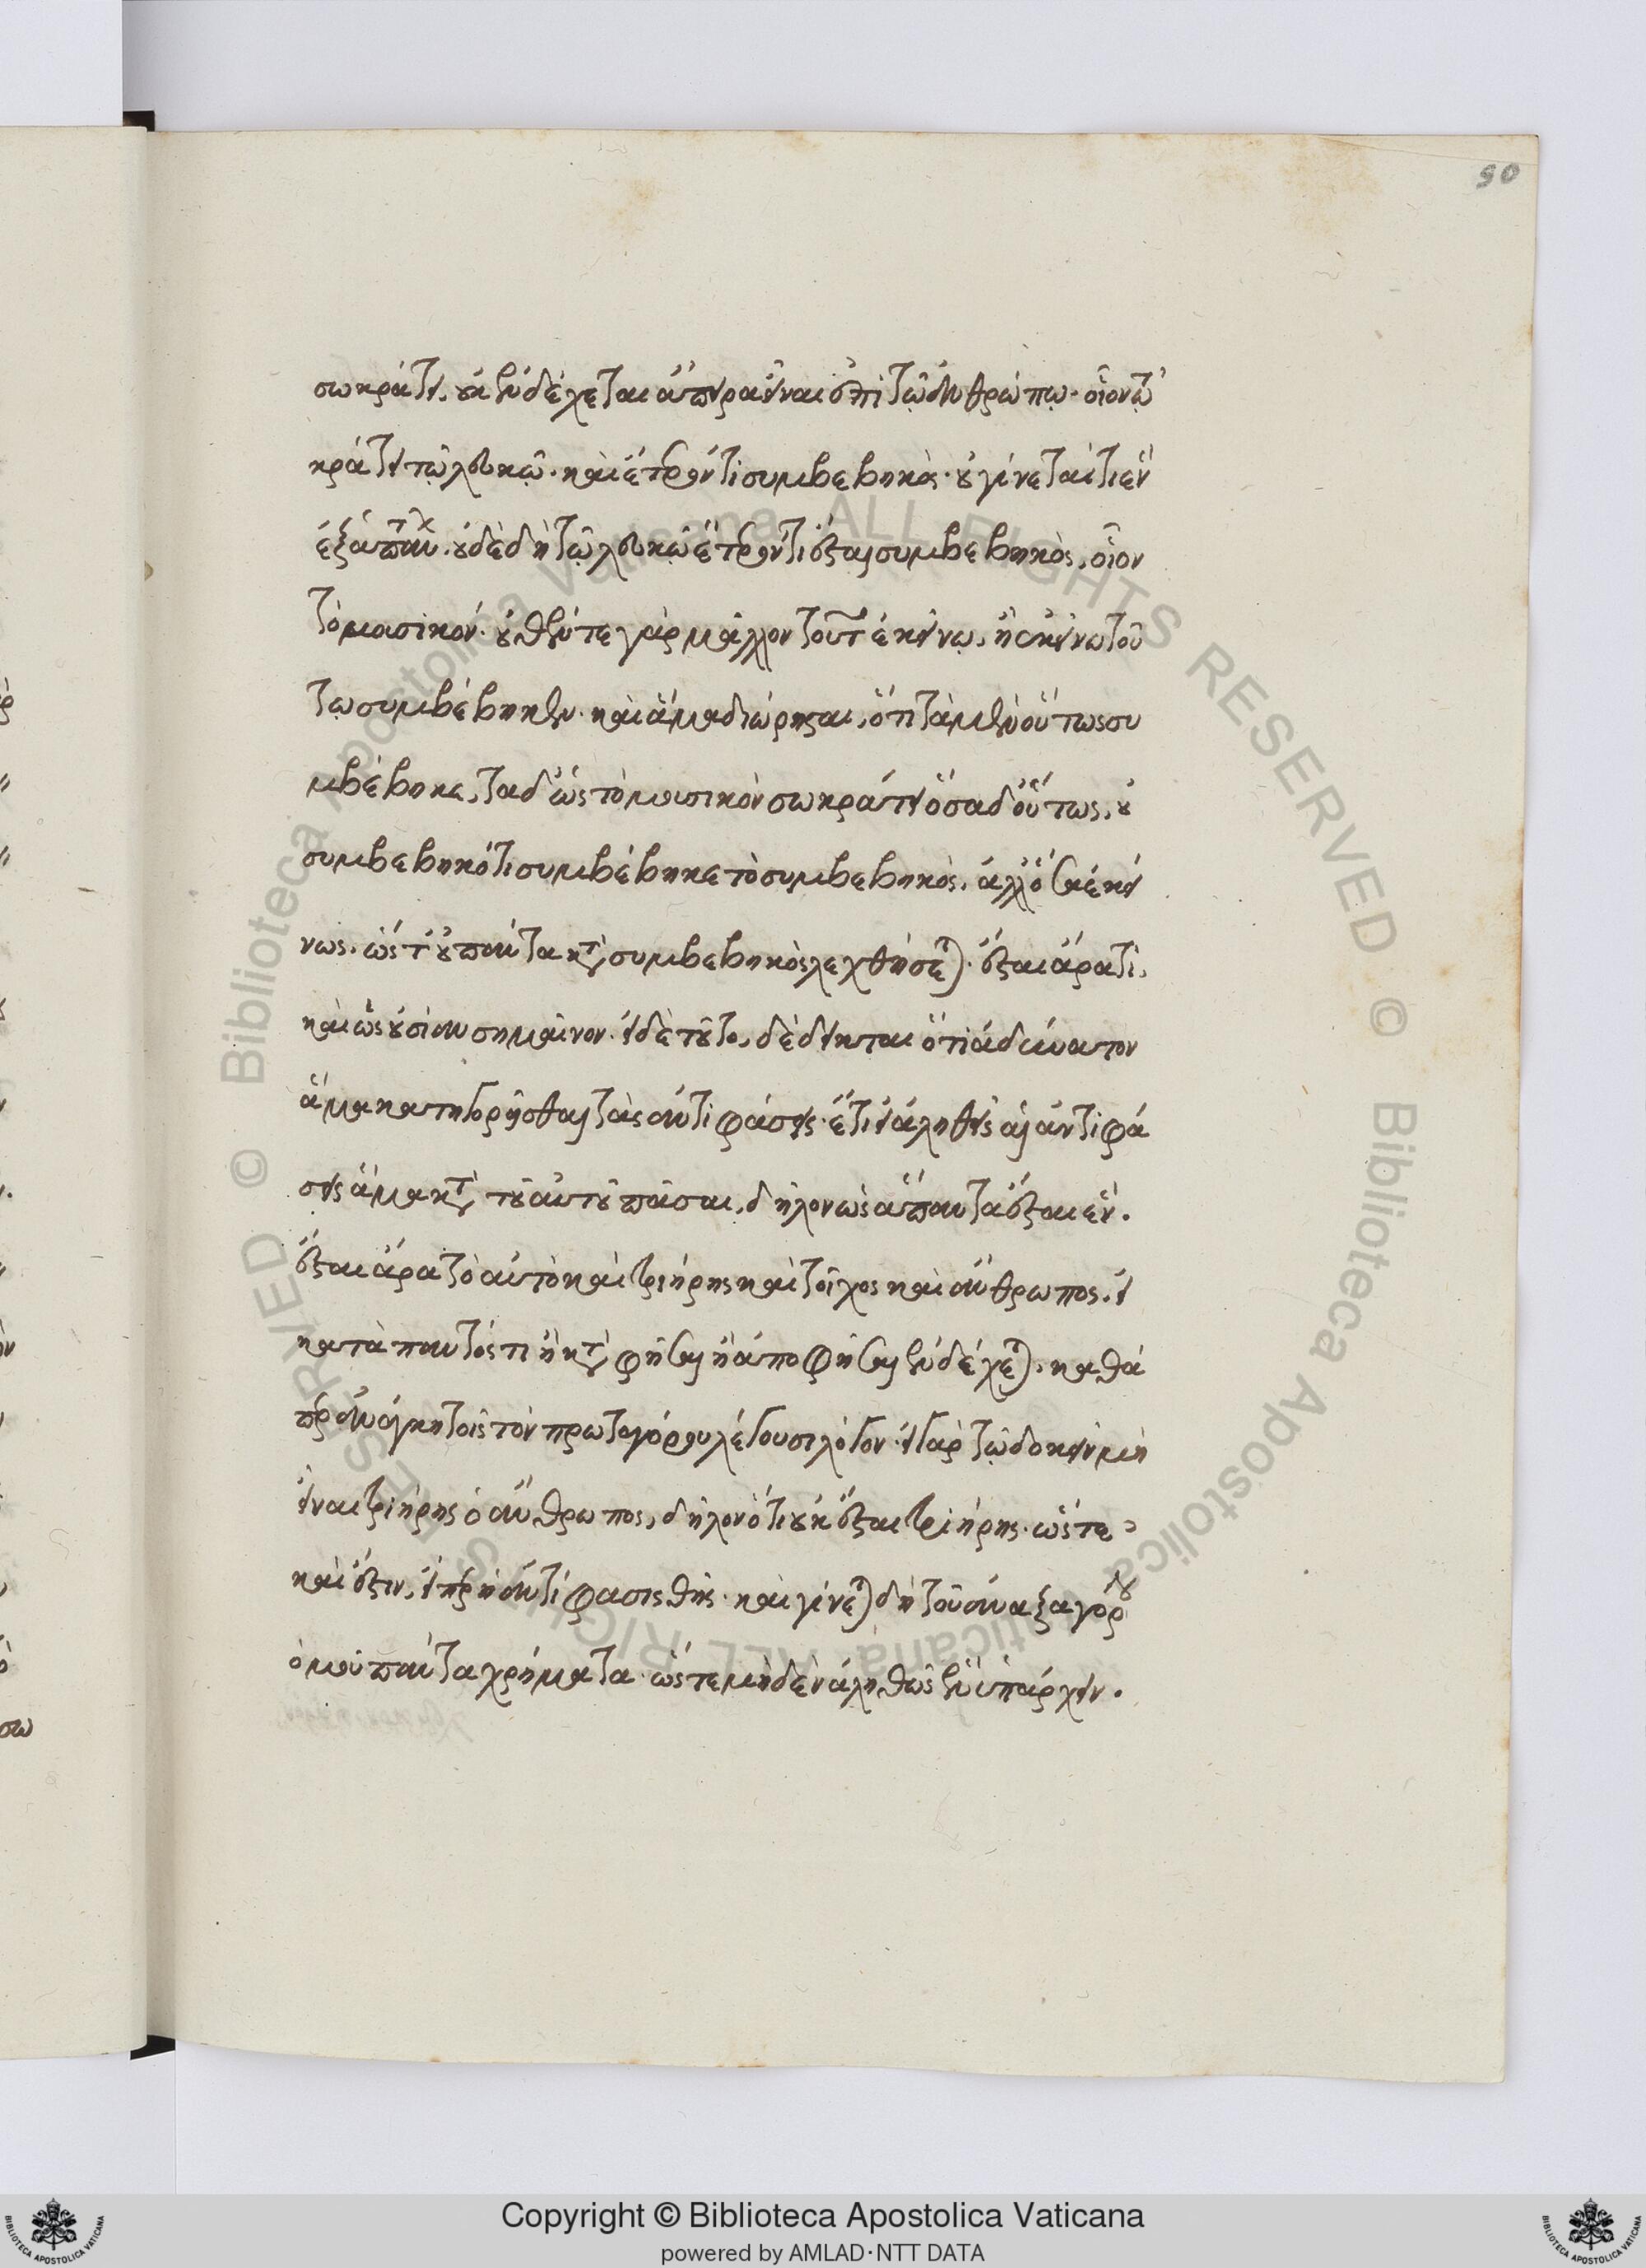 50
σωκράτει, οὐκ ἐνδέχεται ἄπειρα εἶναι ἐπὶ τῷ ἀνθρώπῳ· οἷον τῷ
κράτει τῷ λευκῷ· καὶ ἕτερόν τι συμβεβηκός· οὐ γίνεται τι ἓν
ἐξ ἁπάντων. οὐδὲ δὴ τῷ λευκῷ ἕτερόν τι ἔσται συμβεβηκὸς, οἷον
τὸ μουσικόν· οὐθέν τε γὰρ μᾶλλον τοῦτ ἐκείνῳ, ἢ ἐκείνω τού
τω συμβέβηκεν· καὶ ἅμα διώρησαι, ὅτι τὰ μὲν οὕτως συ
μβέβηκε, τα δ ὡς τὸ μουσικὸν σωκράτει ὅσα δ οὕτως, οὐ
συμβεβηκότι συμβέβηκε τὸ συμβεβηκός. ἀλλ ὅσα ἐκεί
νως. ὥστ οὐ πάντα κατὰ συμβεβηκὸς λεχθήσεται· ἔσται ἄρα τὶ,
καὶ ὡς οὐσίαν σημαῖνον· εἰ δὲ τοῦτο, δέδεικται ὅτι ἀδύνατον
ἅμα κατηγορεῖσθαι τὰς ἀντιφάσεις· ἔτι εἰ ἀληθεῖς αἱ ἀντιφά
σεις ἅμα κατὰ τοῦ αὐτοῦ πᾶσαι, δῆλον ὡς ἅπαντα ἔσται ἕν.
ἔσται ἄρα τὸ αὐτὸ καὶ τριήρης καὶ τοῖχος καὶ ἄνθρωπος, εἰ
κατὰ παντός τι ἢ κατὰ φῆσαι ἢ ἀποφῆσαι ἐνδέχεται, καθά
περ ἀνάγκη τοῖς τὸν πρωταγόρου λέγουσι λόγον· εἰ γάρ τῳ δοκεῖ μὴ
εἶναι τριήρης ὁ ἄνθρωπος, δῆλον ὅτι οὐκ ἔσται τριήρης· ὥστε
καὶ ἔστιν, εἴπερ ἡ ἀντίφασις θής· καὶ γίνεται δὴ τοῦ ἀναξαγόρου
ὁμοῦ πάντα χρήματα· ὥστε μηδὲν ἀληθῶς ἓν ὑπάρχειν.
σω
© Biblioteca Apostolica Vaticana ALL RIGHTS RESERVED © Biblioteca Apostolica Vaticana ALL RIGHTS RESERVED
Copyright © Biblioteca Apostolica Vaticana
powered by AMLAD·NTT DATA
BIBLIOTECA APOSTOLICA VATICANA
BIBLIOTECA APOSTOLICA VATICANA